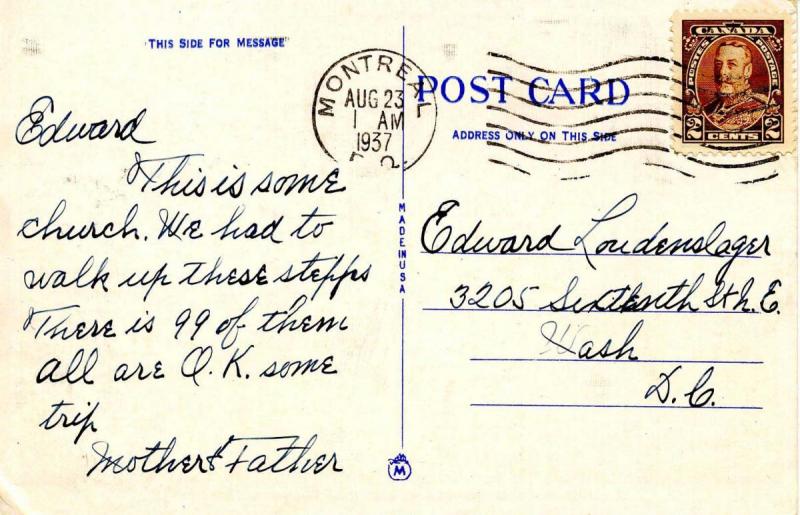 THIS SIDE FOR MESSAGE
Edward
This is some
church. We had to
walk up these stepps
There is 99 of them
all are O.K. some
trip
Mother & Father
MONTREAL
AUG 23
1 AM
1937
P. Q.
MADE IN USA
M
POST CARD
ADDRESS ONLY ON THIS SIDE
CANADA
POSTES POSTAGE
2 CENTS 2
Edward Loudenslager
3205 Sixteenth St N.E.
Wash
D.C.